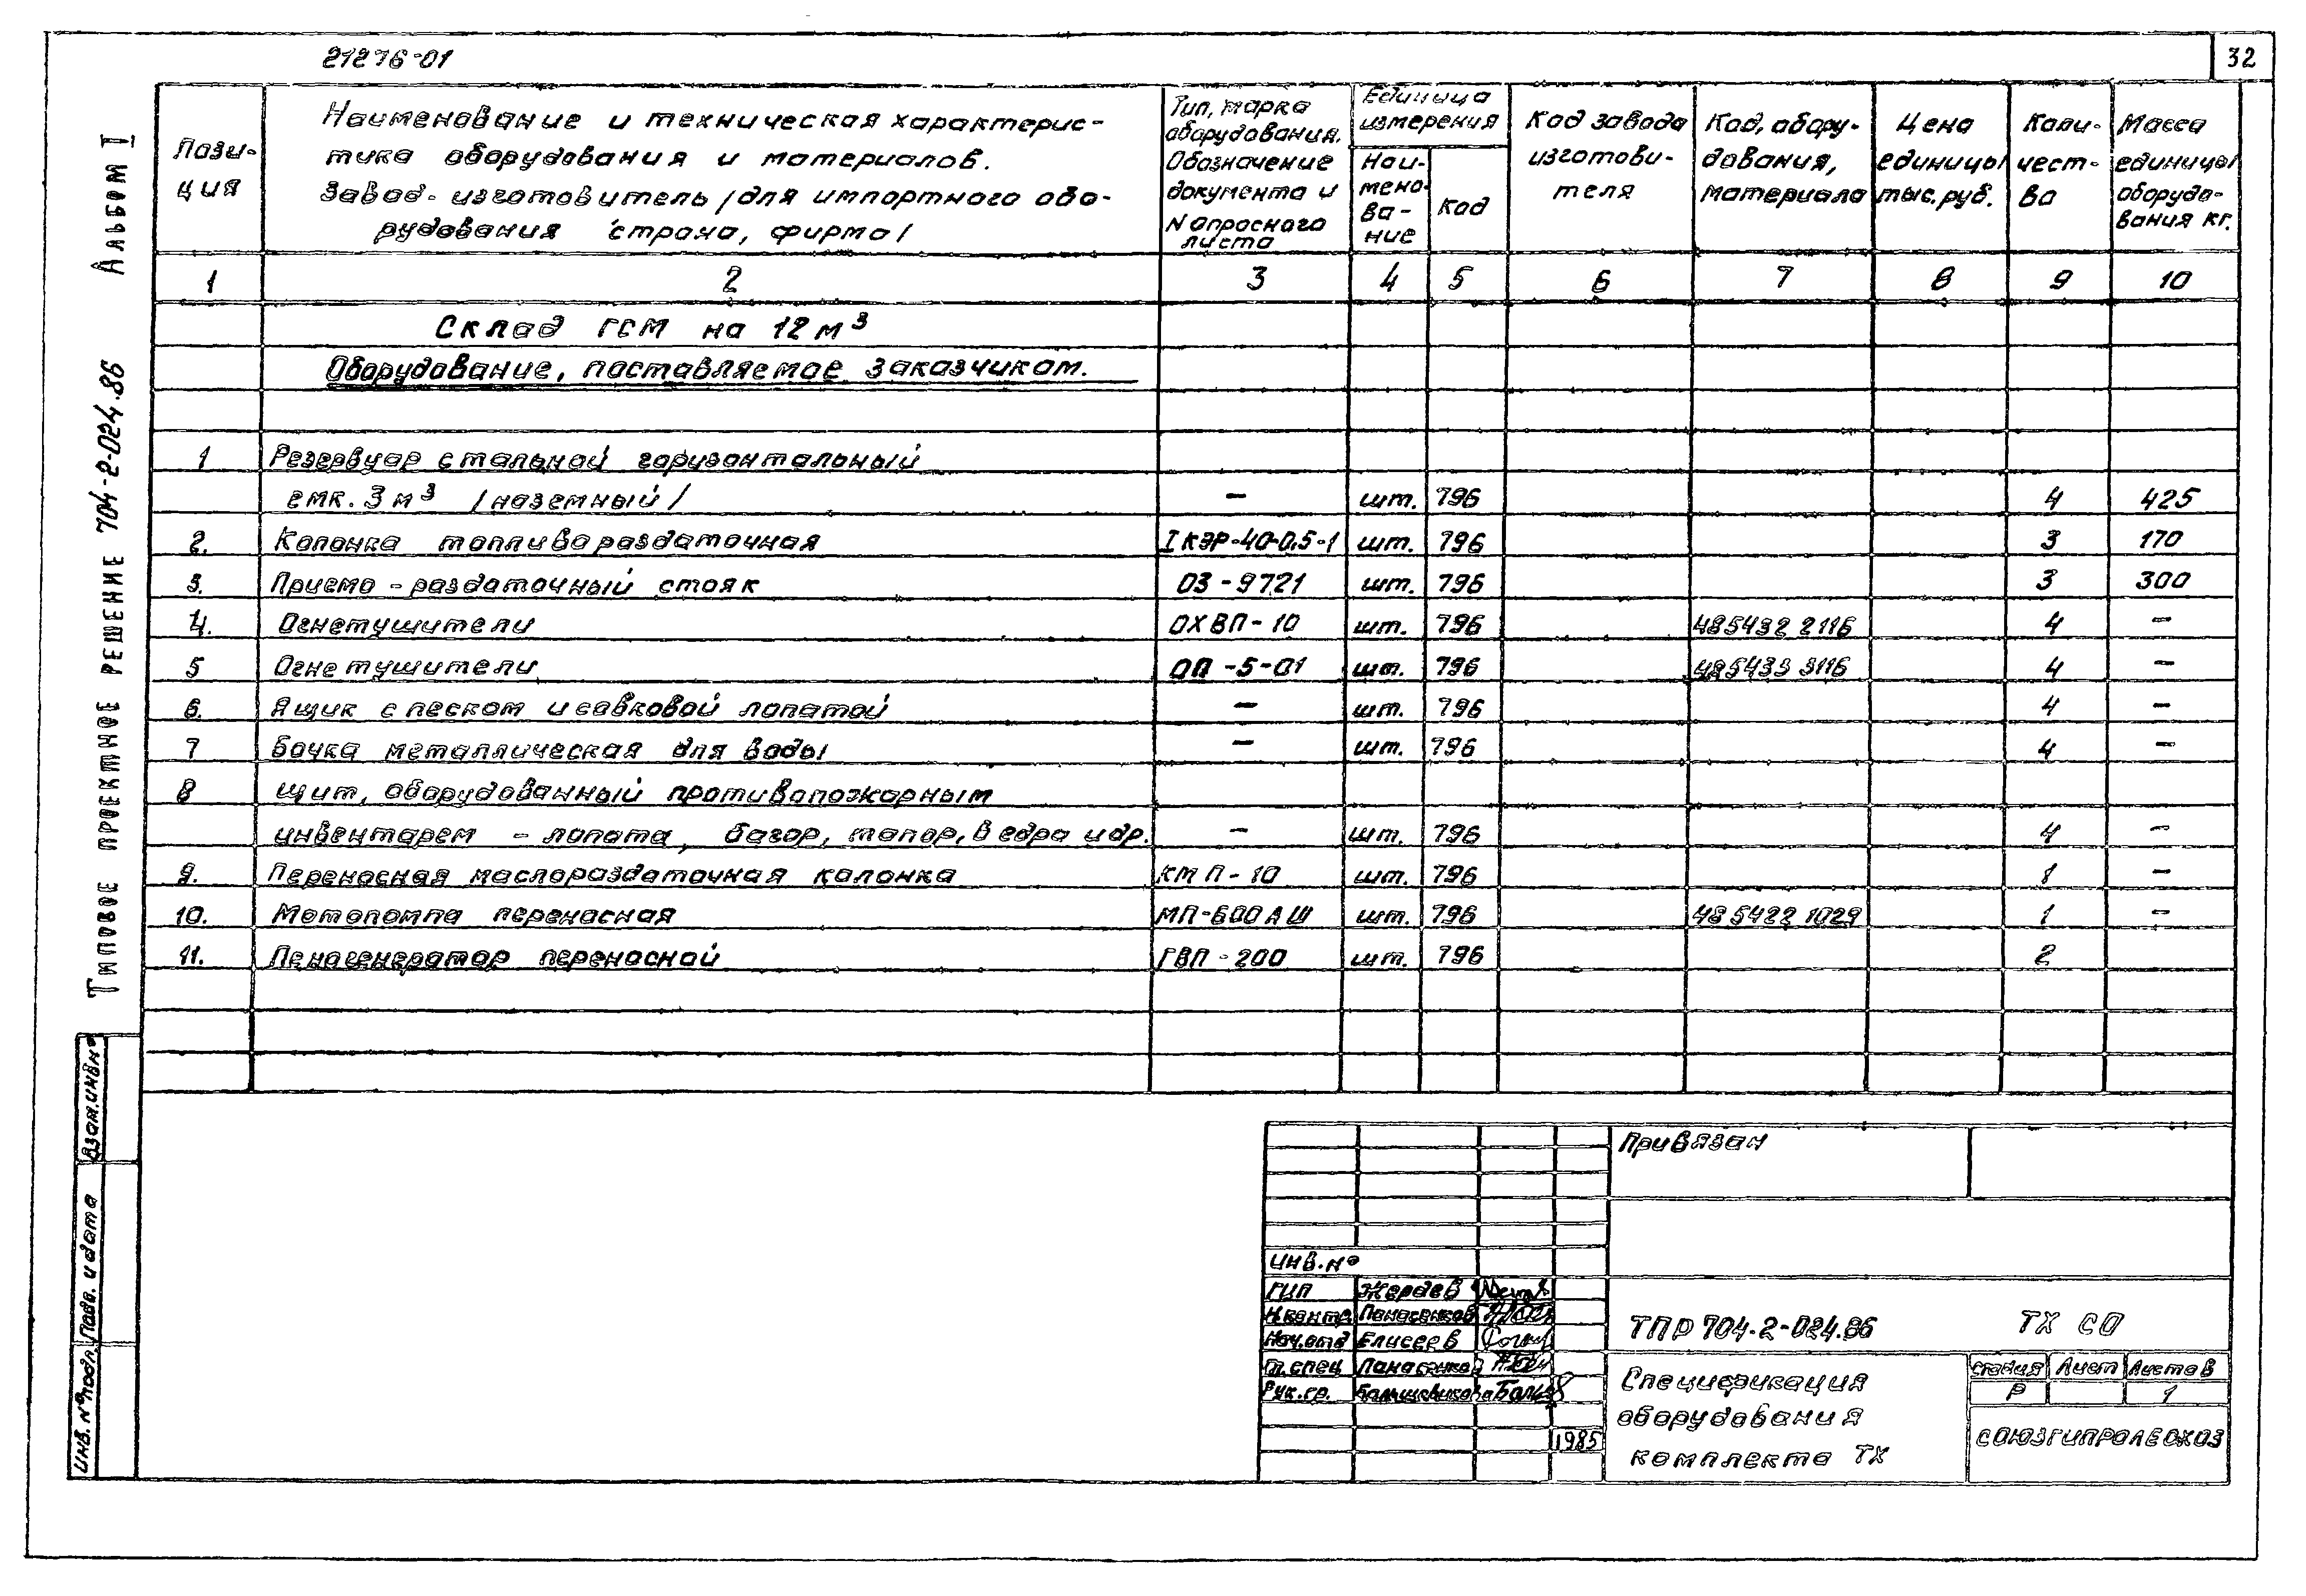 21276-01
32
Альбом I
Типовое проектное решение 704-2-024.86
Пози-
ция
Наименование и техническая характерис-
тика оборудования и материалов.
Завод-изготовитель /для импортного обо-
рудования страна, фирма/
Тип, марка
оборудования.
Обозначение
документа и
N опросного
листа
Единица
измерения
Наи-
мено-
ва-
ние
Код
Код завода
изготови-
теля
Код, обору-
дования,
материала
Цена
единицы
тыс. руб.
Коли-
чест-
во
Масса
единицы
оборудо-
вания кг.
1 2 3 4 5 6 7 8 9 10
Склад ГСМ на 12 м³
Оборудование, поставляемое заказчиком.
1 Резервуар стальной горизонтальный
емк. 3 м³ /наземный/ — шт. 796 4 425
2. Колонка топливораздаточная 1КЭР-40-0,5-1 шт. 796 3 170
3. Приемо-раздаточный стояк ОЗ-9721 шт. 796 3 300
4. Огнетушители ОХВП-10 шт. 796 485432 2116 4 —
5 Огнетушители ОП-5-01 шт. 796 485433 3116 4 —
6. Ящик с песком и совковой лопатой — шт. 796 4 —
7 Бочка металлическая для воды — шт. 796 4 —
8 Щит, оборудованный противопожарным
инвентарем - лопата, багор, топор, ведра и др. — шт. 796 4 —
9. Переносная маслораздаточная колонка КМП-10 шт. 796 1 —
10. Мотопомпа переносная МП-600АШ шт. 796 485422 1029 1 —
11. Пеногенератор переносной ГВП-200 шт. 796 2
Взам. инв №
Подп. и дата
Инв. № подл.
Привязан
Инв. №
ГИП Жердев
Н.контр Панасенков
Нач.отд Елисеев
Гл.спец Панасенков
Рук.гр. Большевикова
1985
ТПР 704-2-024.86 ТХ СО
Спецификация
оборудования
комплекта ТХ
Стадия Лист Листов
Р 1
СОЮЗГИПРОЛЕСХОЗ